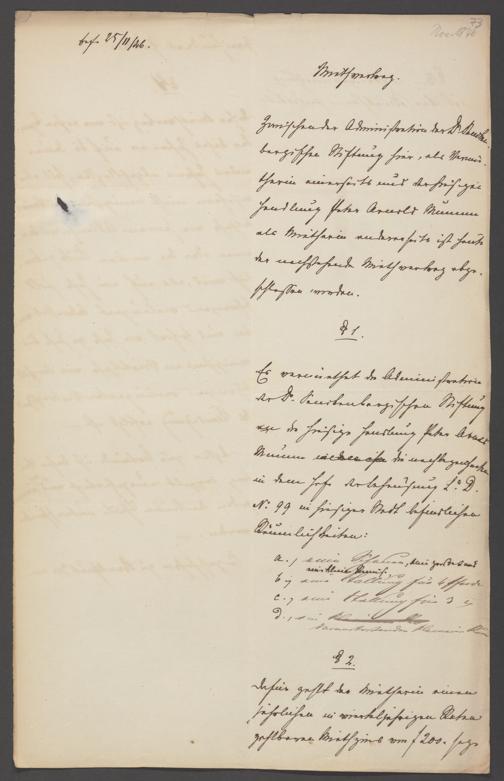 73
25/11/46.
Miethvertrag.
Zwischen der Administration der Dr. Sencken-
bergischen Stiftung hier, als Vermie-
therin einerseits und der hiesigen
Handlung Peter Arnold Mumm
als Mietherin andererseits ist heute
der nachstehende Miethvertrag abge-
schlossen worden.
§ 1.
Es vermiethet die Administration
der Dr. Senckenbergischen Stiftung
an die hiesige Handlung Peter Arnold
Mumm die nachbezeichneten
in dem Hofe der Behausung La. D.
No. 99 in hiesiger Stadt befindlichen
Räumlichkeiten:
a., eine
b., eine Stallung für 6 Pferde
c., eine Stallung für 3
d., ein
§ 2.
Dafür zahlt die Mietherin einen
jährlichen in vierteljährigen Raten
zahlbaren Miethzins von f 200.